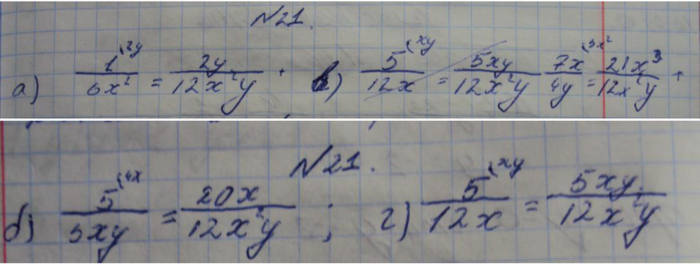 №21.
а) 1^(2y / 6x² = 2y / 12x²y . в) 5^(xy / 12x = 5xy / 12x²y 7x^(3x² / 4y = 21x³ / 12x²y .
№21.
б) 5^(4x / 3xy = 20x / 12x²y ; г) 5^(xy / 12x = 5xy / 12x²y